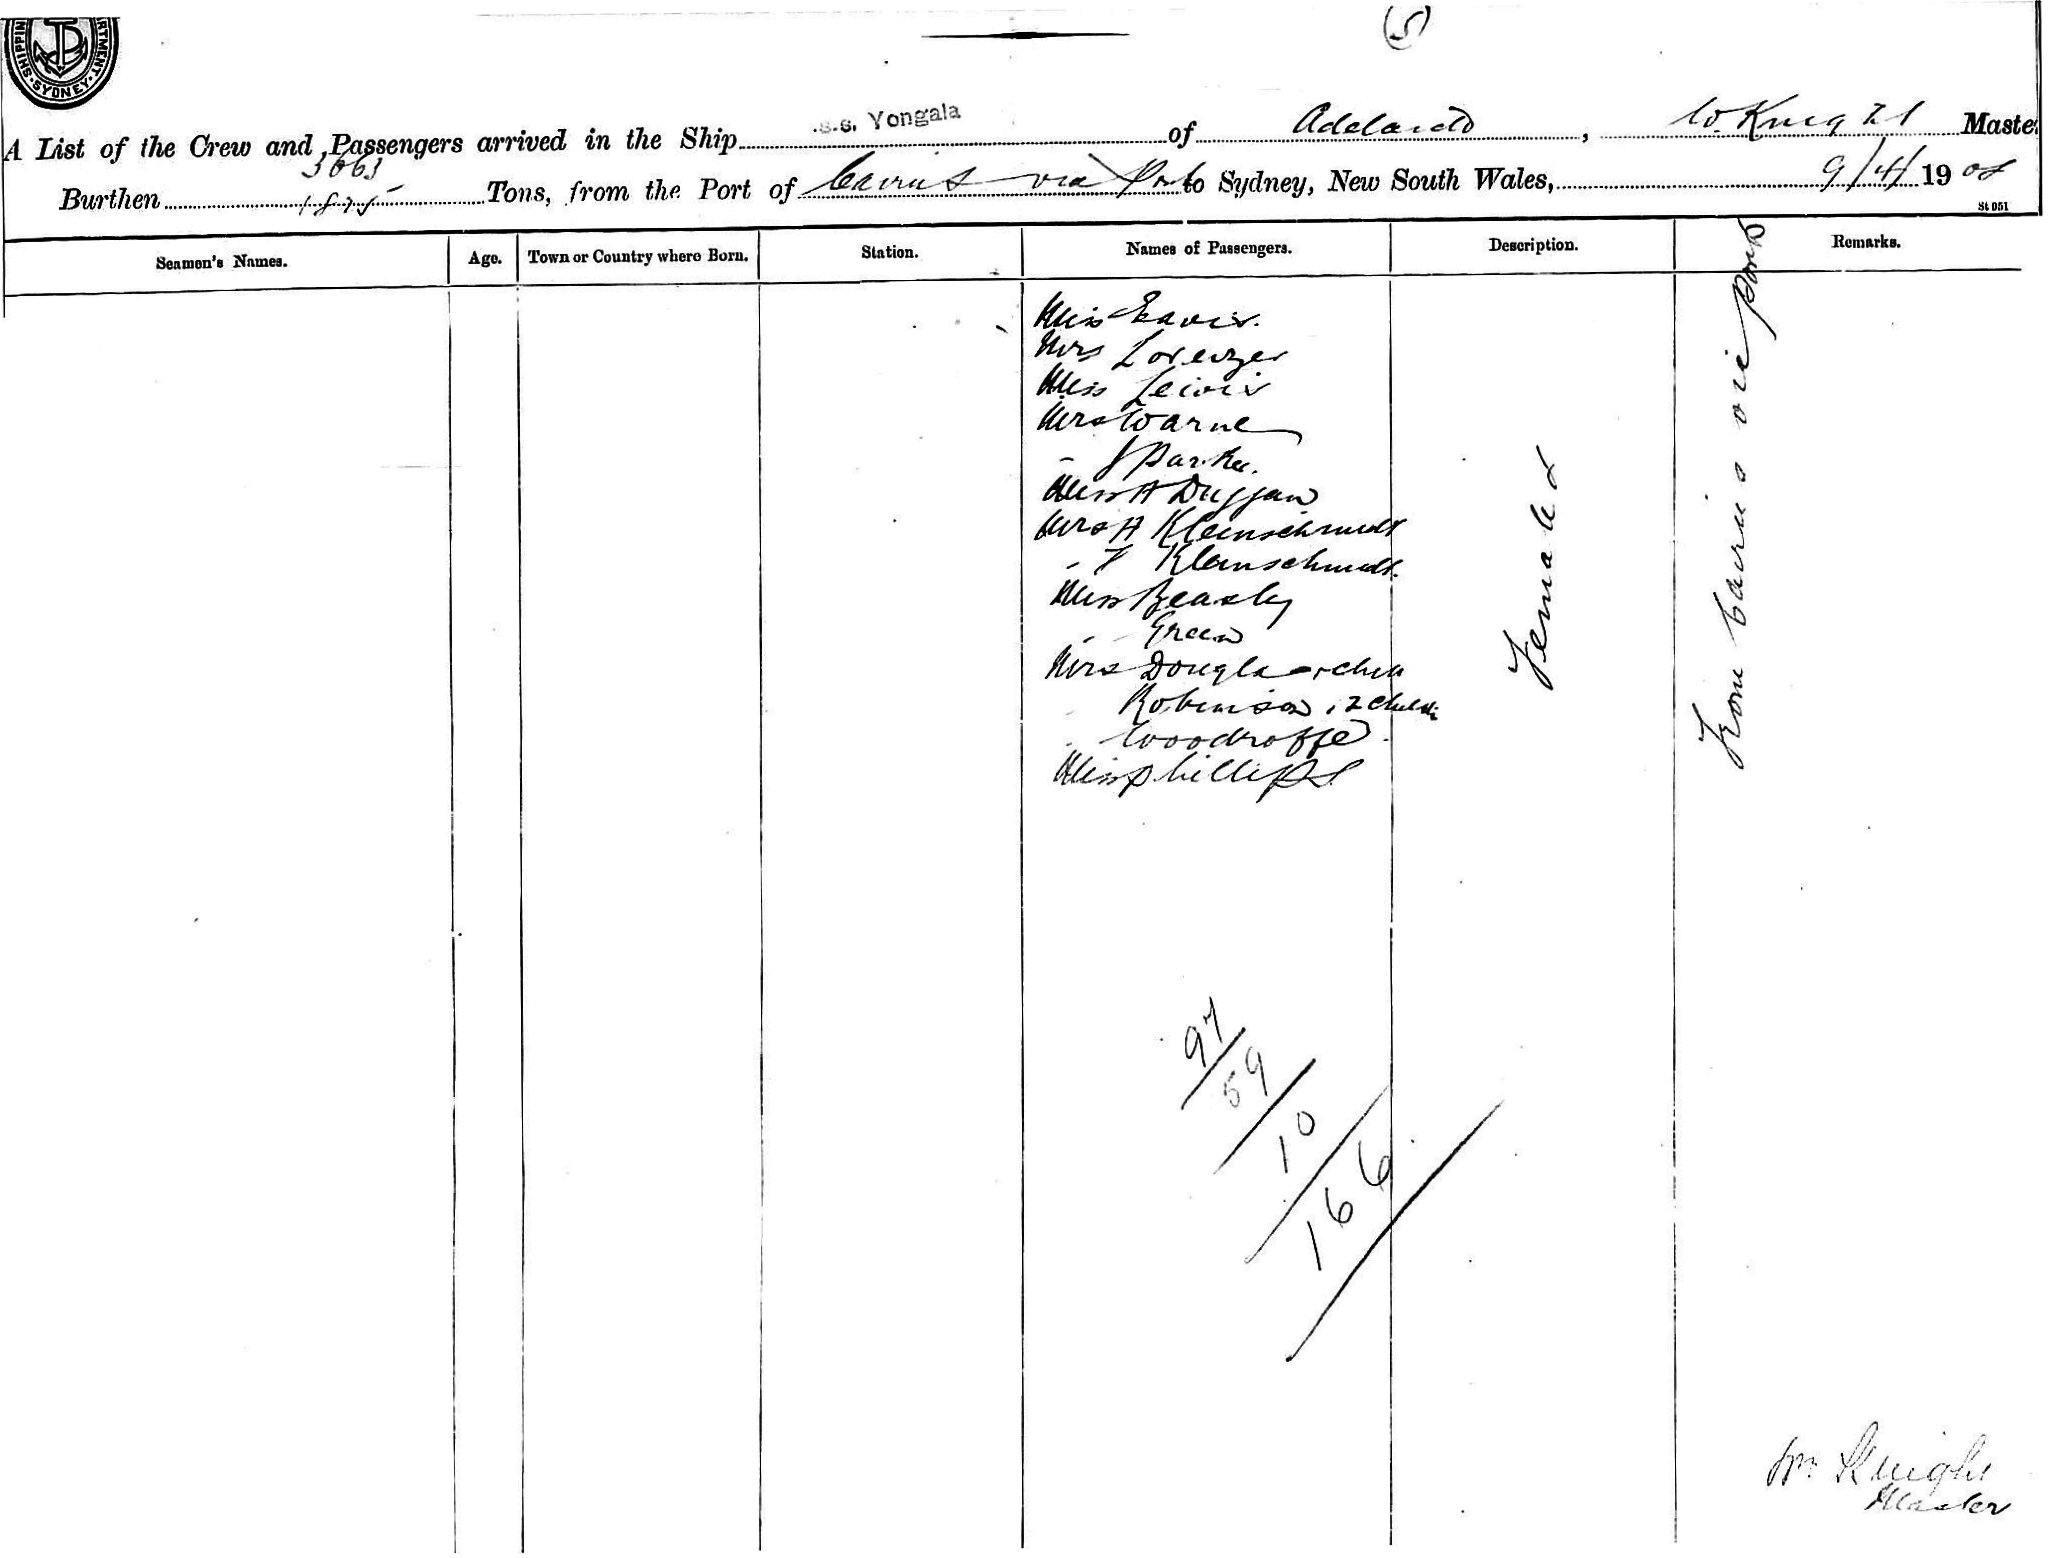 (5)
SHIPPIN RTMENT. SYDNEY.
A List of the Crew and Passengers arrived in the Ship s.s. Yongala of Adelaide, W. Knight Maste
Burthen 3663 1825 Tons, from the Port of Cairns via Ports to Sydney, New South Wales, 9/4/1908
St 051
Seamen's Names. Age. Town or Country where Born. Station. Names of Passengers. Description. Remarks.
Miss
Mrs Lorenzer
Miss Lewis
Mrs Warne
- J Parker.
Miss A Duggan
Mrs A Kleinschmidt
- F Kleinschmidt.
Miss Beasley
- Green
Mrs Douglas
Robinson, 2 child
- Woodroffe
Miss Phillips
Females
From Cairns via Ports
97
59
10
166
Wm Knight
Master